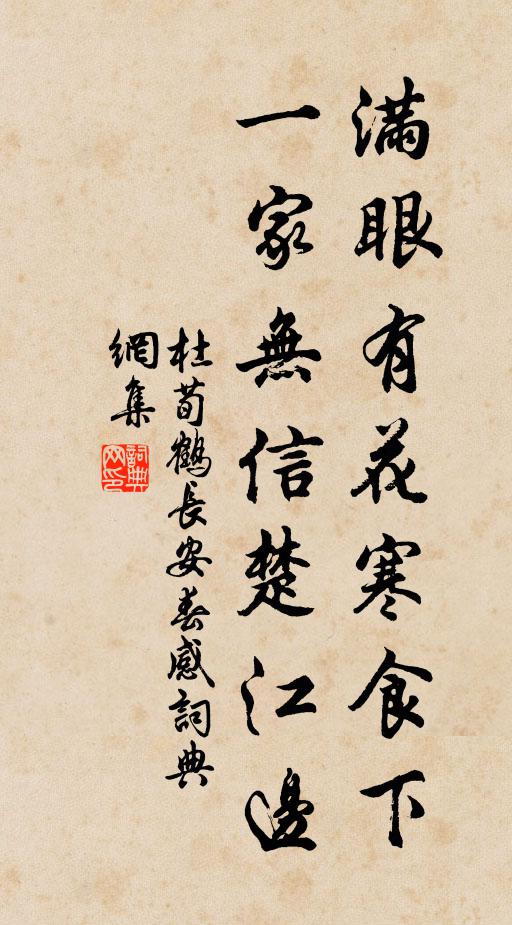 滿眼有花寒食下
一家無信楚江邊
杜荀鶴長安春感詞典
網集
詞典网印